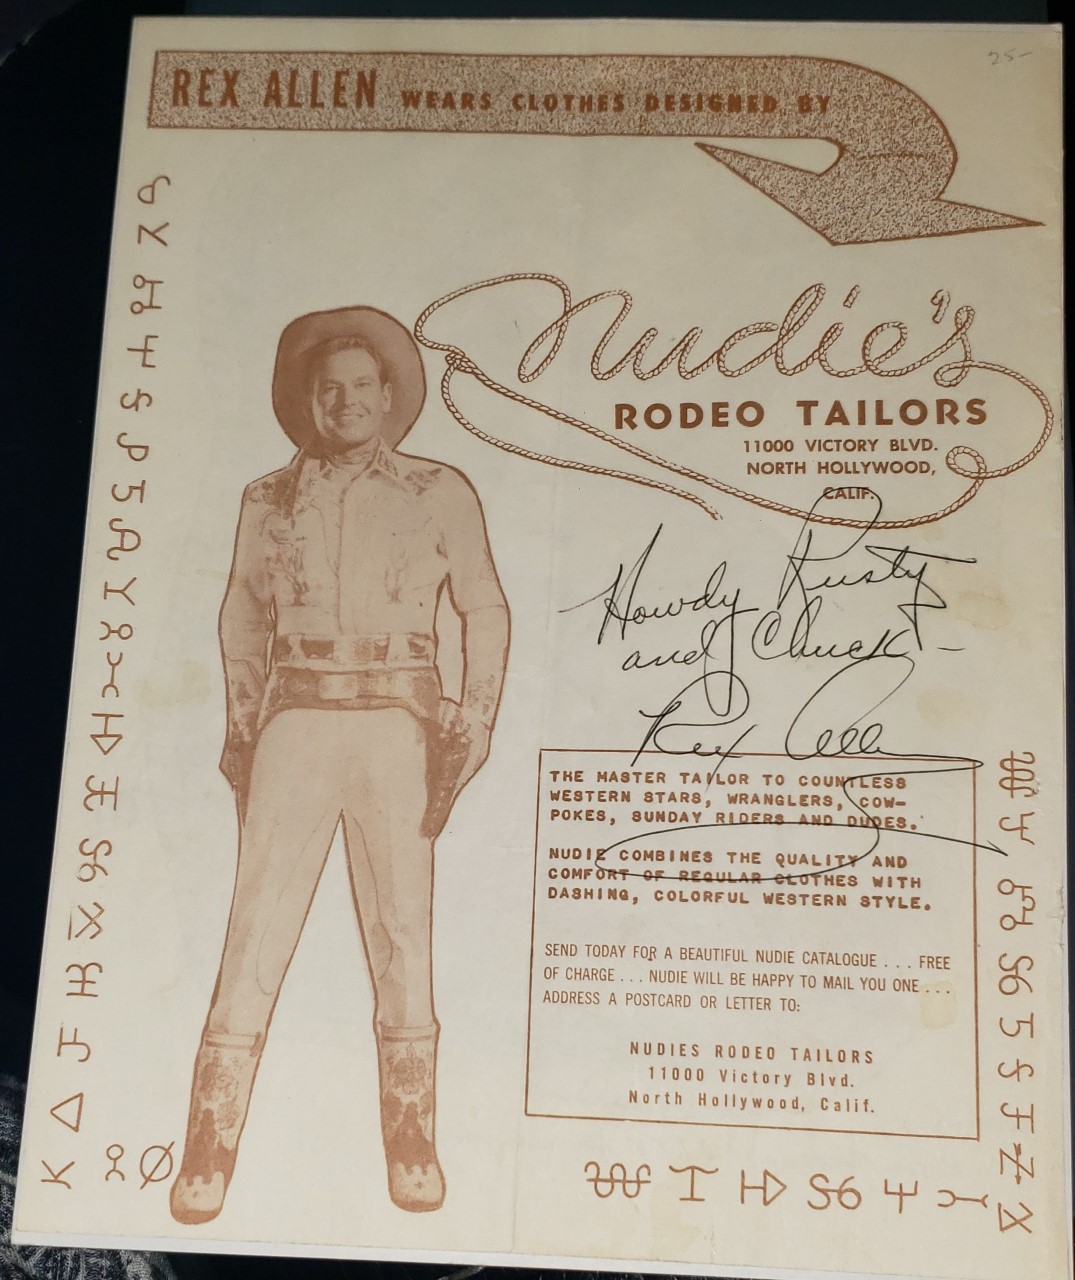 25-
REX ALLEN WEARS CLOTHES DESIGNED BY
Nudie's
RODEO TAILORS
11000 VICTORY BLVD.
NORTH HOLLYWOOD,
CALIF.
Howdy Rusty
and Chuck-
Rex Allen
THE MASTER TAILOR TO COUNTLESS
WESTERN STARS, WRANGLERS, COW-
POKES, SUNDAY RIDERS AND DUDES.
NUDIE COMBINES THE QUALITY AND
COMFORT OF REGULAR CLOTHES WITH
DASHING, COLORFUL WESTERN STYLE.
SEND TODAY FOR A BEAUTIFUL NUDIE CATALOGUE . . . FREE
OF CHARGE . . . NUDIE WILL BE HAPPY TO MAIL YOU ONE . . .
ADDRESS A POSTCARD OR LETTER TO:
NUDIES RODEO TAILORS
11000 Victory Blvd.
North Hollywood, Calif.